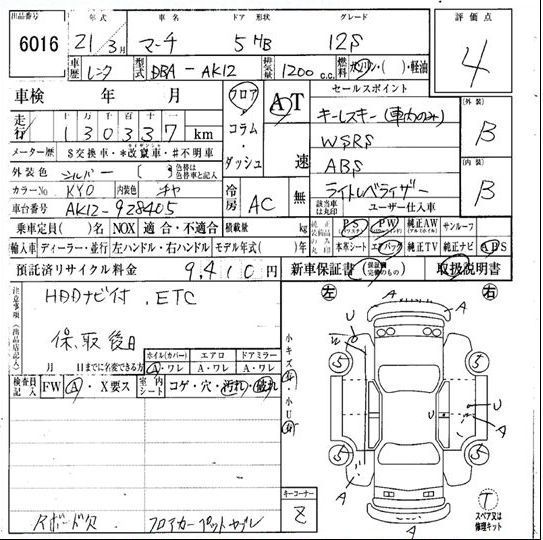 出品番号 6016
年式 21/3月 車名 マーチ ドア 形状 5HB グレード 12S
評価点 4
車歴 レンタ 型式 DBA-AK12 排気量 1200 c.c. 燃料 ガソリン・( )・軽油
車検 年 月
フロア・コラム・ダッシュ
AT 速
セールスポイント
キーレスキー (車内のみ)
WSRS
ABS
ライトレベライザー
外装 B
内装 B
走行 十万千百十一
130337 km
メーター歴 $交換車・*改竄車・#不明車
外装色 シルバー 色替 有 色替車は元色も記入
カラーNo. KY0 内装色 チャ
冷房 AC 無
該当車は丸印 ユーザー仕入車
車台番号 AK12-928405
乗車定員( )名 NOX 適合・不適合 積載量 kg
純正装備品のみ丸印 PS PW 純正AW サンルーフ
輸入車 ディーラー・並行 左ハンドル・右ハンドル モデル年式( )年
本革シート エアバッグ 純正TV 純正ナビ ABS
預託済リサイクル料金 9,410円 新車保証書 取扱説明書
注意事項(出品店記入)
HDDナビ付. ETC
保、取 後日
月 日までに名変できる方
ホイル(カバー) エアロ ドアミラー
A・ワレ A・ワレ A・ワレ
検査員記入 FW A・X要ス 室内シート コゲ・穴・汚れ・破れ
左 右
小キズ 有・小U 有
A
U
A
5
5
5
5
U
A
A
A
キーコーナー
Z
T
スペア又は修理キット
フロアカーペットヤブレ